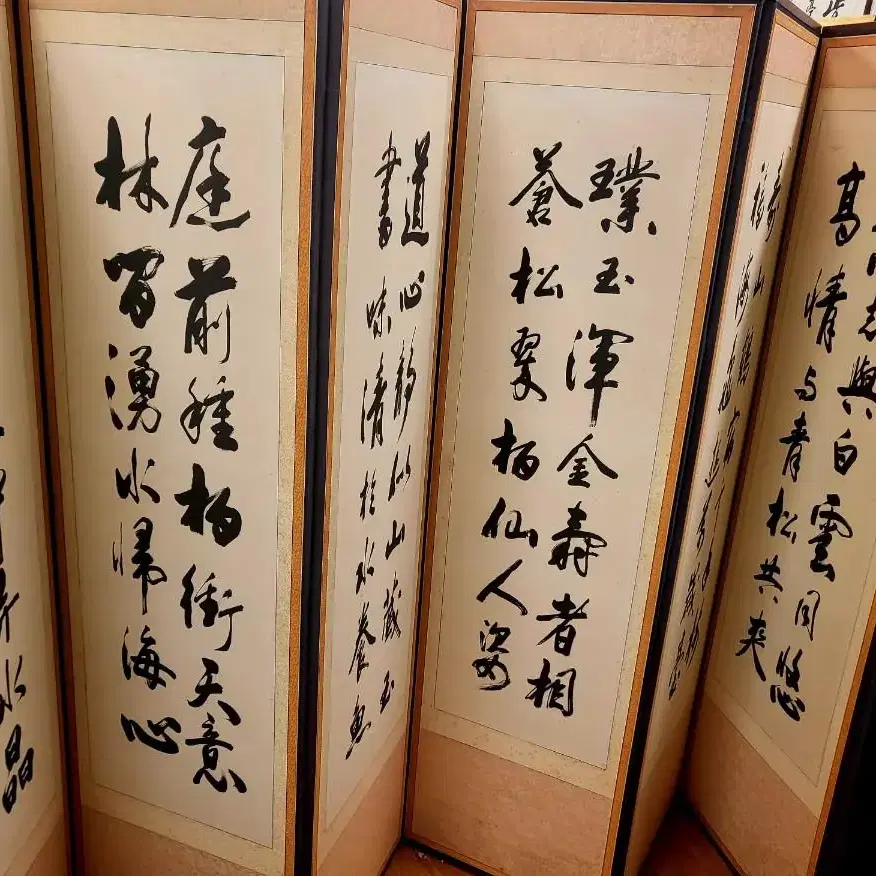 志與白雲同悠
高情与青松共爽
壽山鶴
福海
璞玉渾金壽者相
蒼松翠柏仙人姿
道心靜似山藏玉
書味清於水養魚
庭前種楊衝天意
林間湧水歸海心
水晶